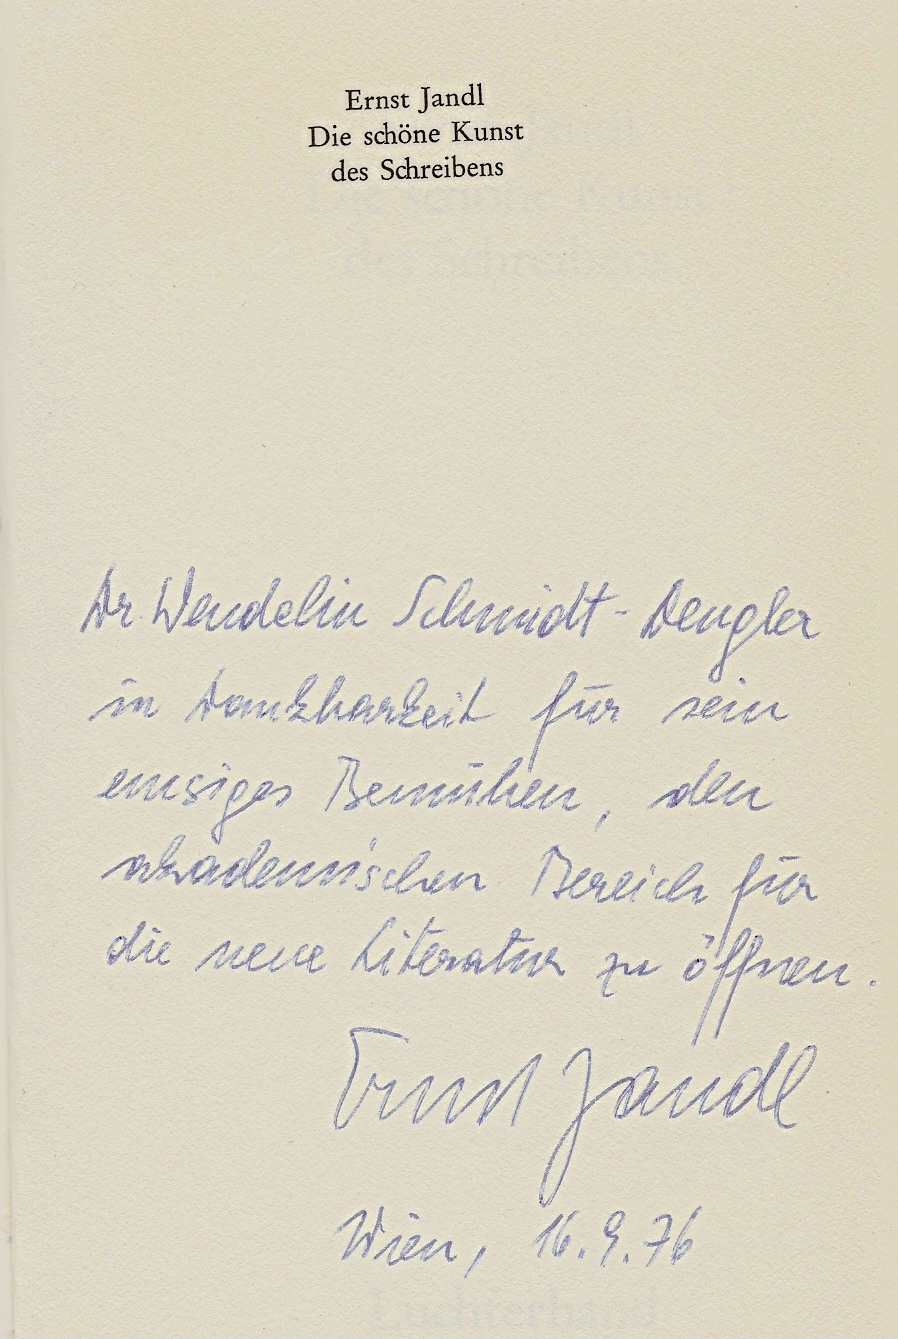 Ernst Jandl
Die schöne Kunst
des Schreibens
Dr. Wendelin Schmidt-Dengler
in Dankbarkeit für sein
emsiges Bemühen, den
akademischen Bereich für
die neue Literatur zu öffnen.
Ernst Jandl
Wien, 16.9.76
Luchterhand